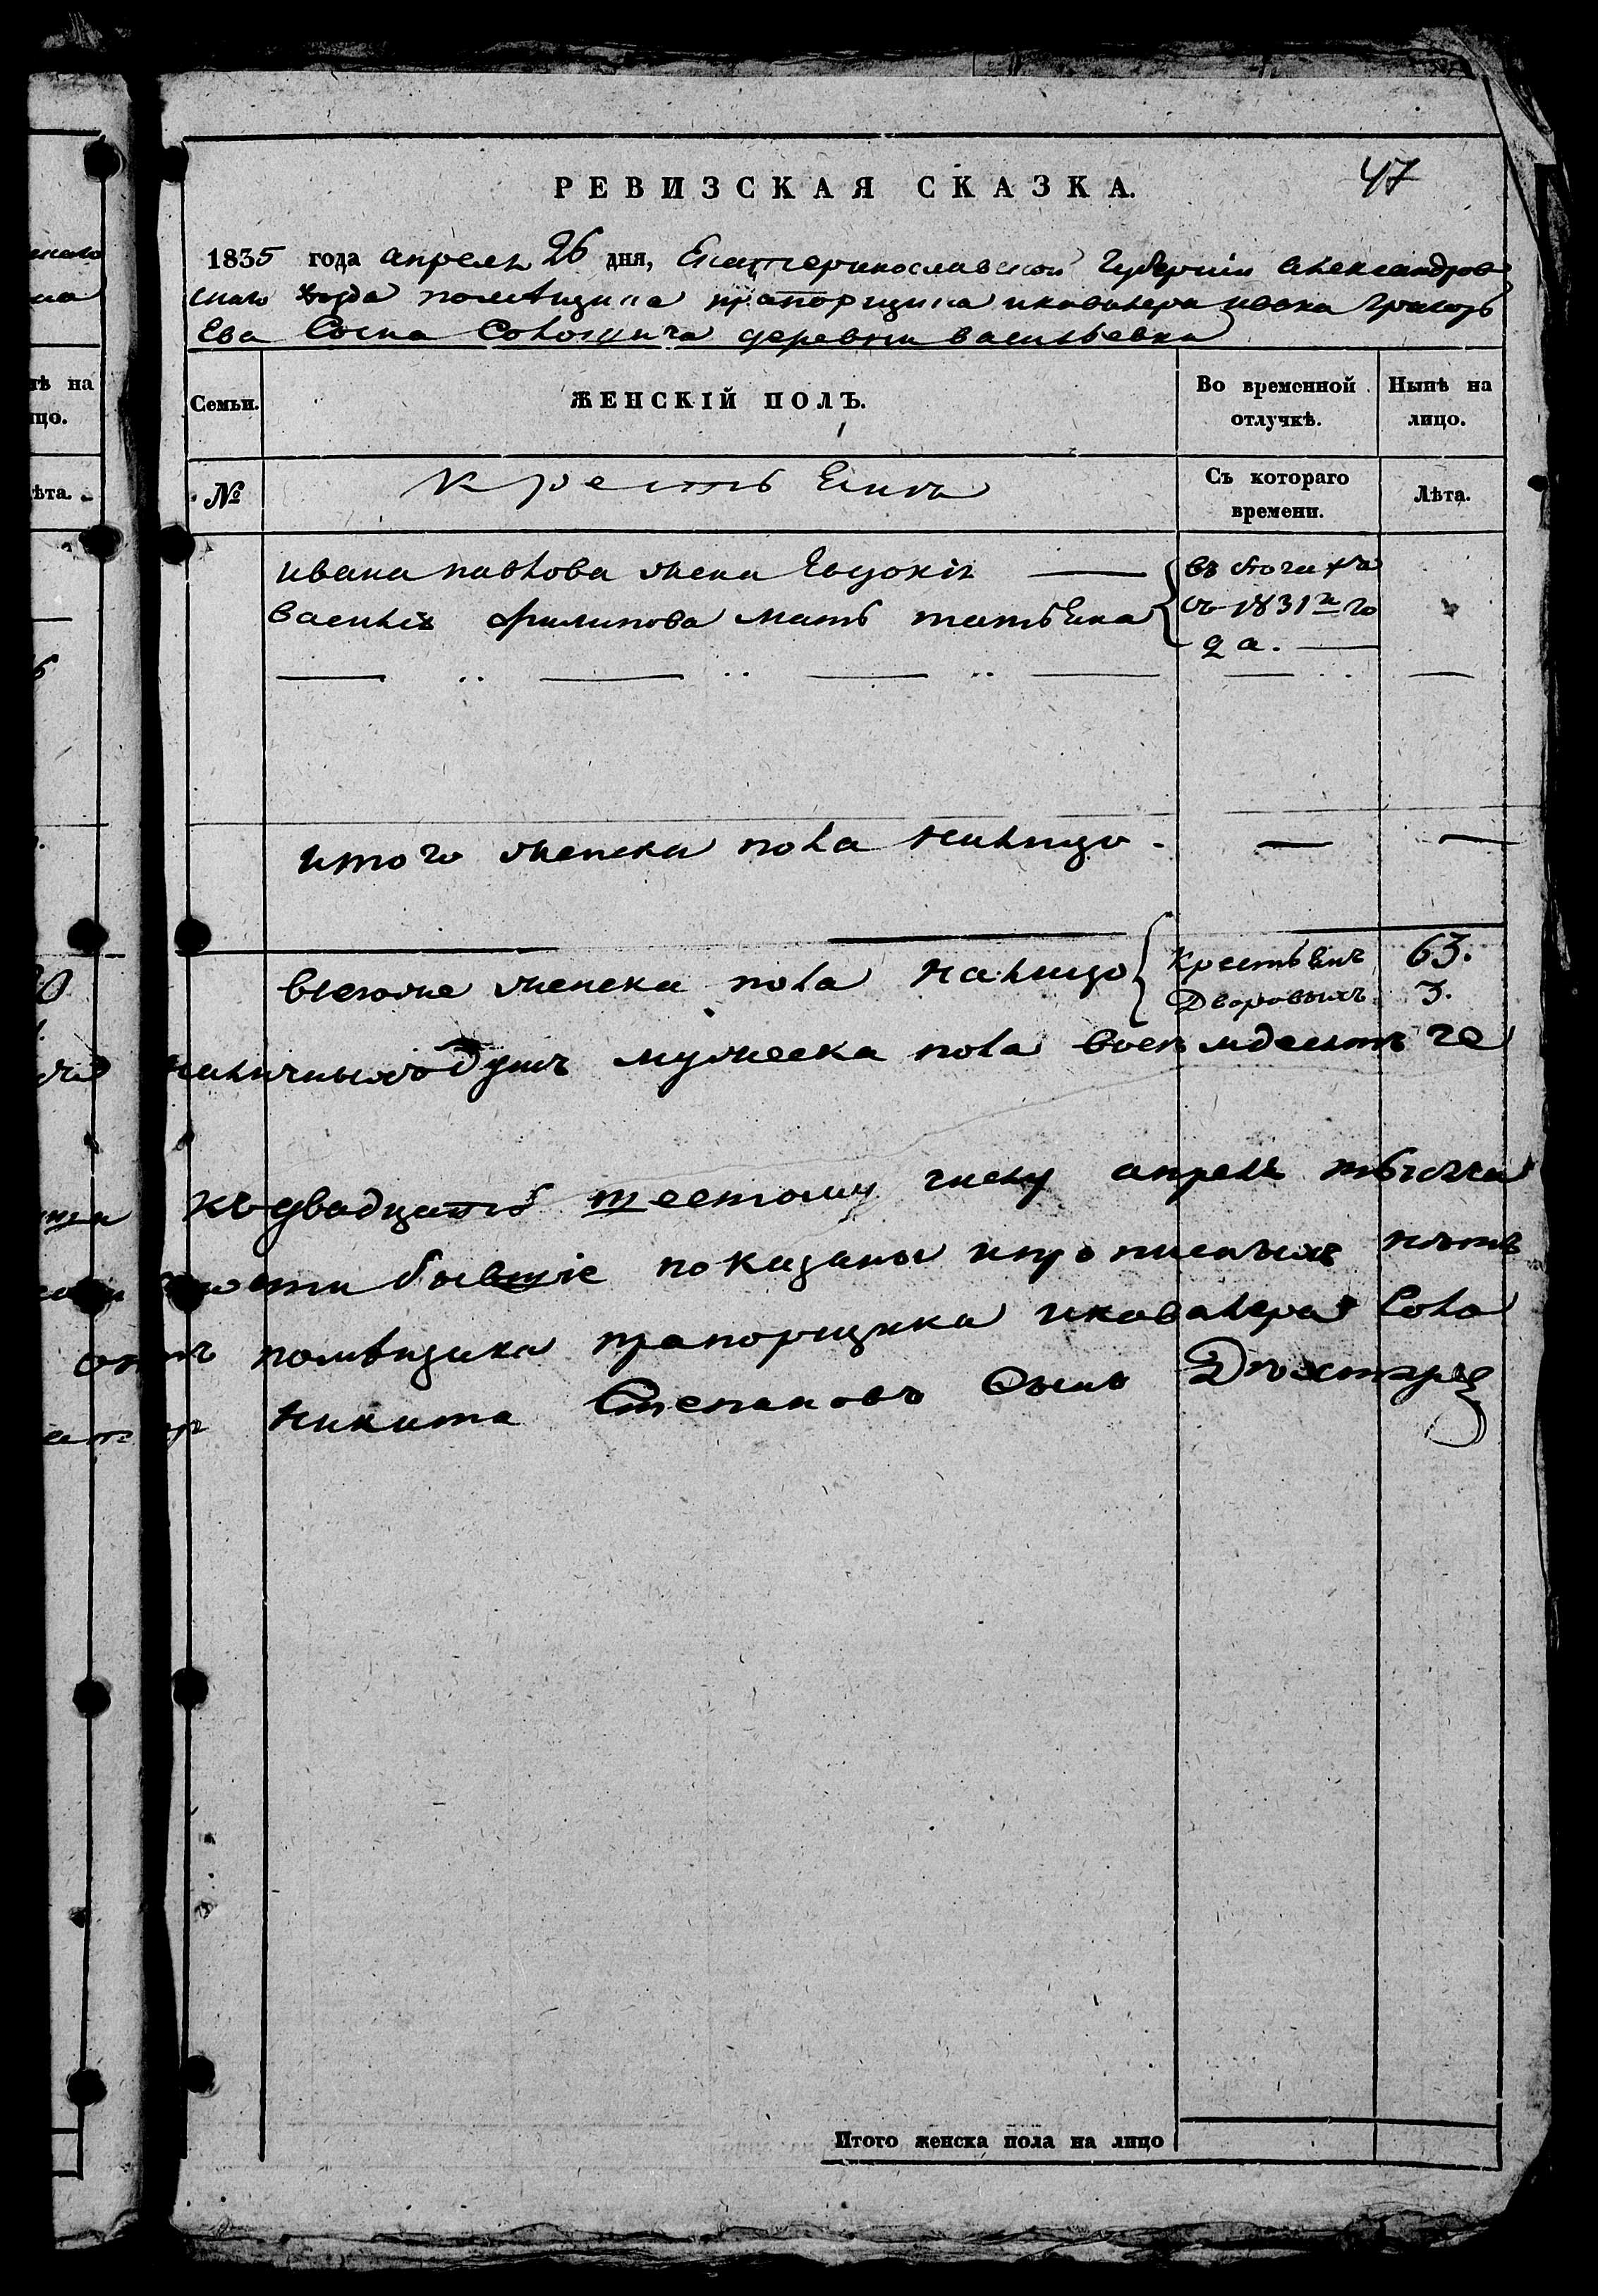 47
РЕВИЗСКАЯ СКАЗКА.
1835 года апреля 26 дня, Екатеринославской Губернии александров
скаго уезда помѣщика прапорщика икавалера ивана григорь
Ева Сына деревни васильевки
Семьи.
ЖЕНСКІЙ ПОЛЪ.
Во временной отлучкѣ.
Нынѣ на лицо.
№
крестьЕинъ
Съ котораго времени.
Лѣта.
ивана павлова жена Евдокія
василья филипова мать татьЕна
въ бѣгахъ
съ 1831го го
да.
итого женска пола налицо
—
—
всегоже женска пола налицо
крестьЕнъ 63.
Дворовыхъ 3.
наличныхъ душъ мужеска пола восемьдесятъ че
къдвадцать шестому числу апреля мѣсяца
бывшіе показаны ипрописныхъ нѣтъ
помѣщика прапорщика икавалера Соло
никита Степановъ Сынъ
Итого женска пола на лицо
тѣ на
цо.
ѣта.